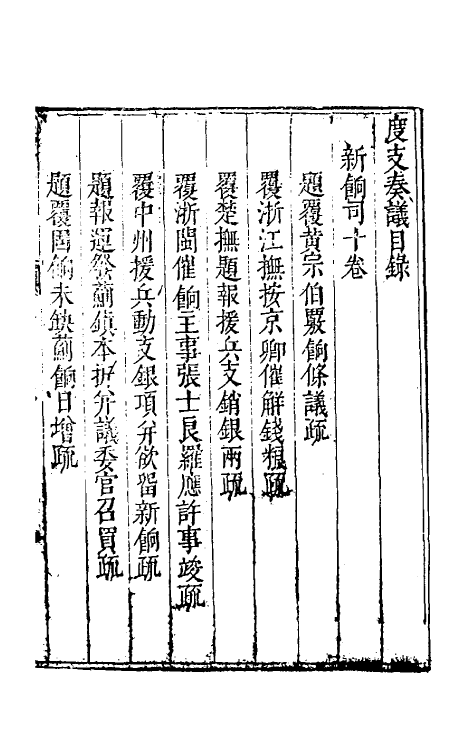 度支奏議目錄
新餉司十卷
題覆黃宗伯覈餉條議疏
覆浙江撫按京卿催解錢糧疏
覆楚撫題報援兵支銷銀兩疏
覆浙閩催餉主事張士良羅應許事竣疏
覆中州援兵動支銀項并欲留新餉疏
題報運發薊鎮本折并議委官召買疏
題覆關餉未缺薊餉日增疏